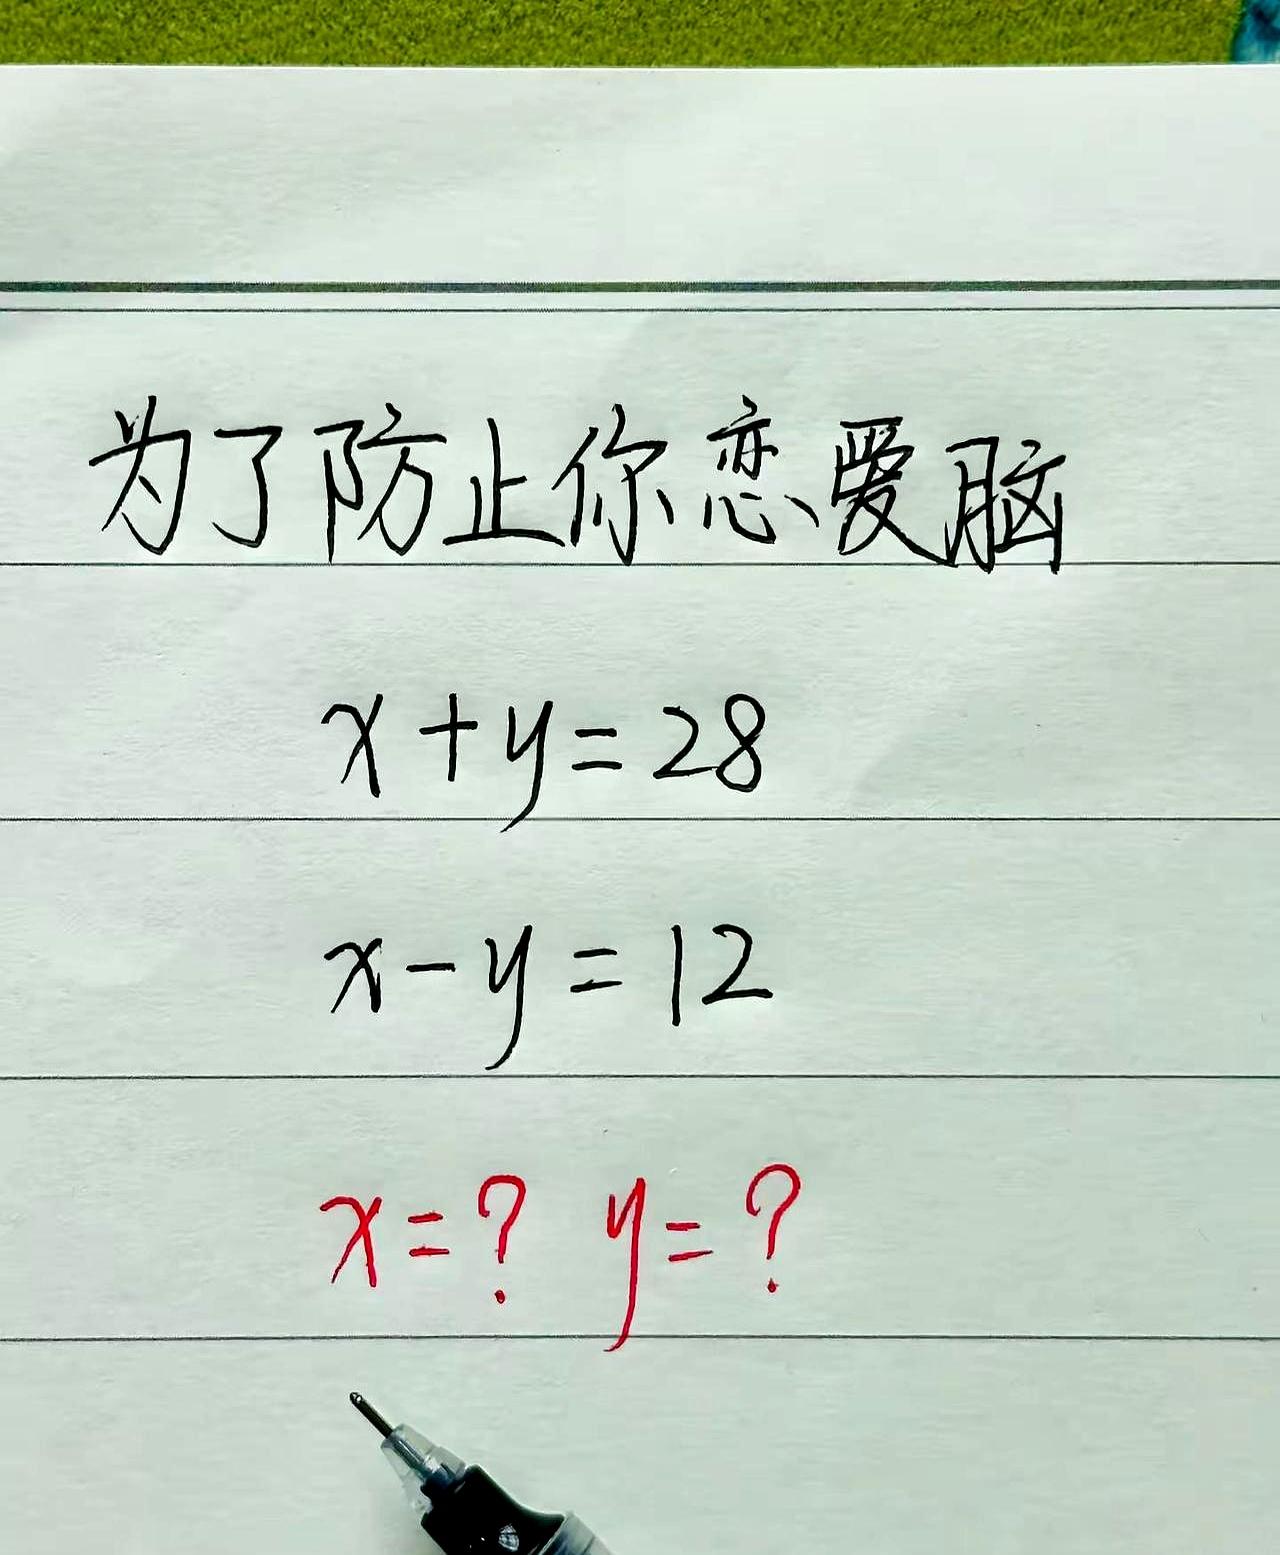 为了防止你恋爱脑
x+y=28
x-y=12
x=? y=?